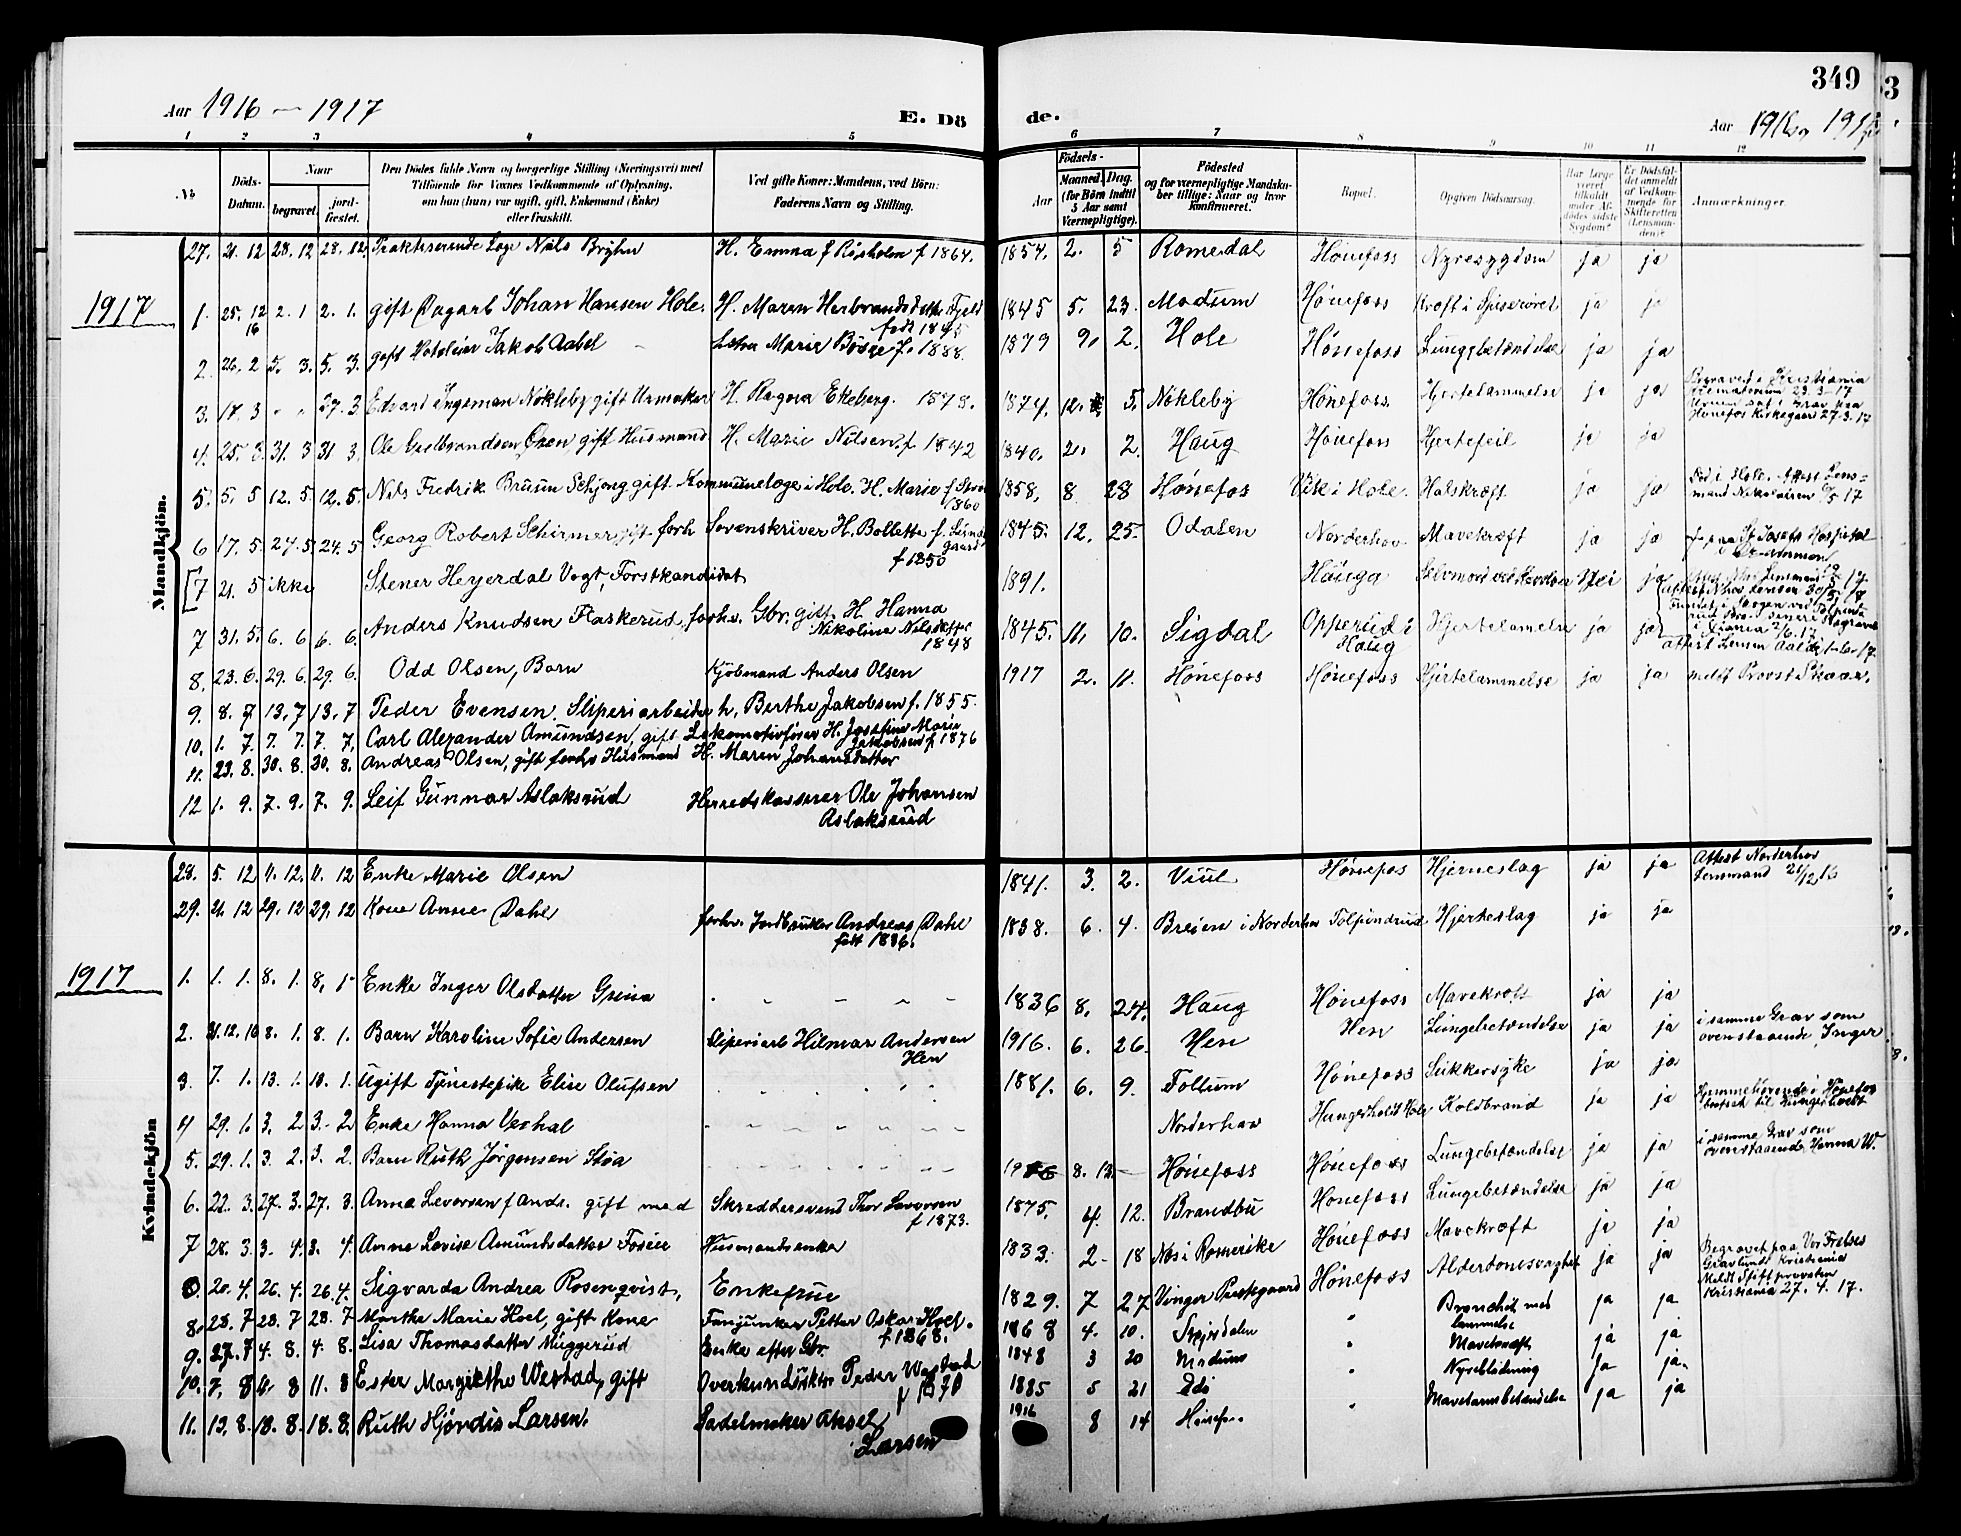 349
Aar 1916 — 1917 E. Dö de. Aar 1916 og 1917
1 2 3 4 5 6 7 8 9 10 11 12
No
Döds-Datum.
Naar begravet. jordfæstet.
Den Dödes fulde Navn og borgerlige Stilling (Næringsvei) med Tilföiende for Voxnes Vedkommende af Oplysning, om han (hun) var ugift, gift, Enkemand (Enke) eller fraskilt.
Ved gifte Koner: Mandens, ved Börn: Faderens Navn og Stilling.
Födsels- Aar Maaned. Dag. (for Börn indtil 5 Aar samt Værnepligtige).
Födested og for værnepligtige Mandskaber tillige: Naar og hvor konfirmeret.
Bopæl.
Opgiven Dödsaarsag.
Har Læge været tilkaldt under Afdödes sidste Sygdom?
Er Dödsfaldet anmeldt af Vedkommende for Skifteretten (Lensmanden)?
Anmærkninger.
Mandkjön.
27. 21. 12 28. 12 28. 12. Praktiserende Læge Nils Bryhn H. Emma f. 1864. 1854. 2. 5 Romedal Hönefoss Nyresygdom ja ja
1917
1. 25. 12 16 2. 1 2. 1. gift Johan Hansen Hole. H. Maren Herbrandsdatter Fjeld født 1845 1845 5. 23. Modum Hönefoss Kræft i Spiserøret ja ja
2. 26. 2 5. 3. 5. 3. gift Jakob Aabel Marie f. 1888. 1879 9. 2. Hole Hönefoss Lungebetændelse ja ja
3. 17. 3 " " 27. 3 Edvard Ingeman Nökleby gift Urmaker H. Ragna Ekeberg. 1878. 1874. 12. 5. Nökleby Hönefoss Hjertelammelse ja ja Begravet i Kristiania Krematorium 23-3-17 Urnen sat i Grav paa Hönefos Kirkegaard 27-3-17
4. 25. 3. 31. 3 31 3. Ole gift Husmand H. Marie Nilsen, f. 1842 1840. 2. 2. Haug Hönefoss Hjertefeil ja ja
5. 5. 5 12. 5. 12. 5. Nils Fredrik Bruun Schjong gift Kommunelæge i Hole. H. Marie f. 1860 1858. 8 28 Hönefos Vik i Hole. Halskræft ja ja Död i Hole. Attest Lensmand Nikolaisen 17
6 17. 5. 24. 5. 24. 5 Georg Robert Schirmer gift forh Sorenskriver H. Bollette f. f 1850 1845. 12. 25. Odalen Norderhov Mavekræft ja ja paa St Josefs Hospital i Drammen
[7 21. 5 ikke Stener Heyerdal Vogt, Forstkandidat 1891. Hauga Selvmord ved Nei ja
7 31. 5. 6. 6 6. 6. Anders Knudsen Flaskerud, forhv. Gbr. gift. H. Hanna Nikoline Nilsdatter 1848 1845. 11. 10. Sigdal Opperud i Haug Hjertelamelse ja ja
8. 23. 6. 29. 6. 29. 6. Odd Olsen, Barn Kjöbmand Anders Olsen 1917 2. 11. Hönefoss Hönefoss Hjertelammelse ja ja meldt Provst Skaar.
9. 8. 7 13. 7 13. 7 Peder Evensen. Sliperiarbeider h. Berthe Jakobsen f. 1855.
10. 1. 7. 7. 7. 7. 7. Carl Alexander Amundsen, gift Lokomotivfører H. Josefine Marie Jakobsen f 1876
11. 23. 8. 30. 8. 30. 8. Andreas Olsen, gift forhv Husmand H. Maren Johansdatter
12 1. 9. 7. 9. 7. 9. Leif Gunnar Aslaksrud Herredskasserer Ole Johansen Aslaksrud
Kvindekjön
28. 5. 12 11. 12. 11. 12 Enke Marie Olsen 1841. 3. 2. Viul Hönefos Hjerneslag ja ja Attest Norderhov Lensmand 21/12 16
29. 21. 12 29. 12 29. 12 Kone Anne Dahl forhv. Jordbruker Andreas Dahl født 1836. 1838. 6. 4. Breien i Norderhov Tolpinrud Hjerteslag ja ja
1917
1. 1. 1. 8. 1. 8. 1 Enke Inger Olsdatter 1836 8. 24. Haug Hönefoss Mavekræft ja ja
2. 31. 12. 16 8. 1. 8. 1. Barn Karoline Sofie Andersen Sliperiarb Hilmar Andersen Hen 1916. 6. 26. Hen Hen Lungebetændelse ja ja i samme Grav som ovenstaaende, Inger
3. 7. 1. 13. 1. 13. 1. Ugift Tjenestepike Elise Olufsen 1881. 6. 9. Follum Hönefoss Sukkersyke ja ja
4 29. 1. 3. 2 3. 2 Enke Hanna Norderhov Koldbrand ja ja Hjemmehørende i Hönefos
5. 29. 1. 3. 2. 3. 2. Barn Ruth Jörgensen Stöa 8. 13. Hönefoss Hönefoss Lungebetændelse ja ja i samme Grav som ovenstaaende Hanna W.
6. 22. 3. 27. 3. 27. 3 Anna Levorsen f. Ands. gift med Skreddersvend Thor Levorsen f 1873. 1875. 4. 12. Brandbu Hönefoss Lungebetændelse ja ja
7 28. 3. 3. 4. 3. 4. Anne Lovise Amundsdatter Fosse Husmandsenke 1833. 2 18 Nes i Romerike Hönefoss Mavekræft ja ja
20. 4. 26. 4. 26. 4. Sigvarda Andrea Rosenqvist, Enkefrue 1829. 7 27 Vinger Prestegaard Hönefoss Alderdomsvaghet ja ja Begravet paa Vor Frelses Gravlund Kristiania Meldt Stiftprovsten Kristiania 27. 4. 17.
8. 23. 7 28. 7 28. 7 Marthe Marie Hoel, gift Kone Fanjunker Petter Oskar Hoel. f 1868. 1868 4. 10. " Bronchit med lammelse ja ja
9. 27. 7 4. 8. 4. 8. Lisa Thomasdatter Muggerud Enke efter Gbr. 1848 3 20 Modum " Mavekræft ja ja
10. 7. 8 11. 8 11. 8 Ester Margrethe Westad, gift Peder Westad f 1870 1885 5 21 " Nyreblödning ja ja.
11. 13. 8. 18. 8. 18. 8. Ruth Hjördis Larsen. Sadelmaker Aksel Larsen 1916 8 14 Hönefos " Mavetarmbetændelse ja ja